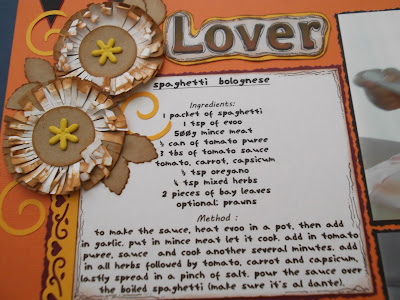 Lover
spaghetti bolognese
Ingredients:
1 packet of spaghetti
1 tsp of evoo
500g mince meat
½ can of tomato puree
3 tbs of tomato sauce
tomato, carrot, capsicum
½ tsp oregano
½ tsp mixed herbs
2 pieces of bay leaves
optional: prawns
Method :
to make the sauce, heat evoo in a pot, then add
in garlic, put in mince meat let it cook. add in tomato
puree, sauce and cook another several minutes. add
in all herbs followed by tomato, carrot and capsicum.
lastly spread in a pinch of salt. pour the sauce over
the boiled spaghetti (make sure it's al dante).